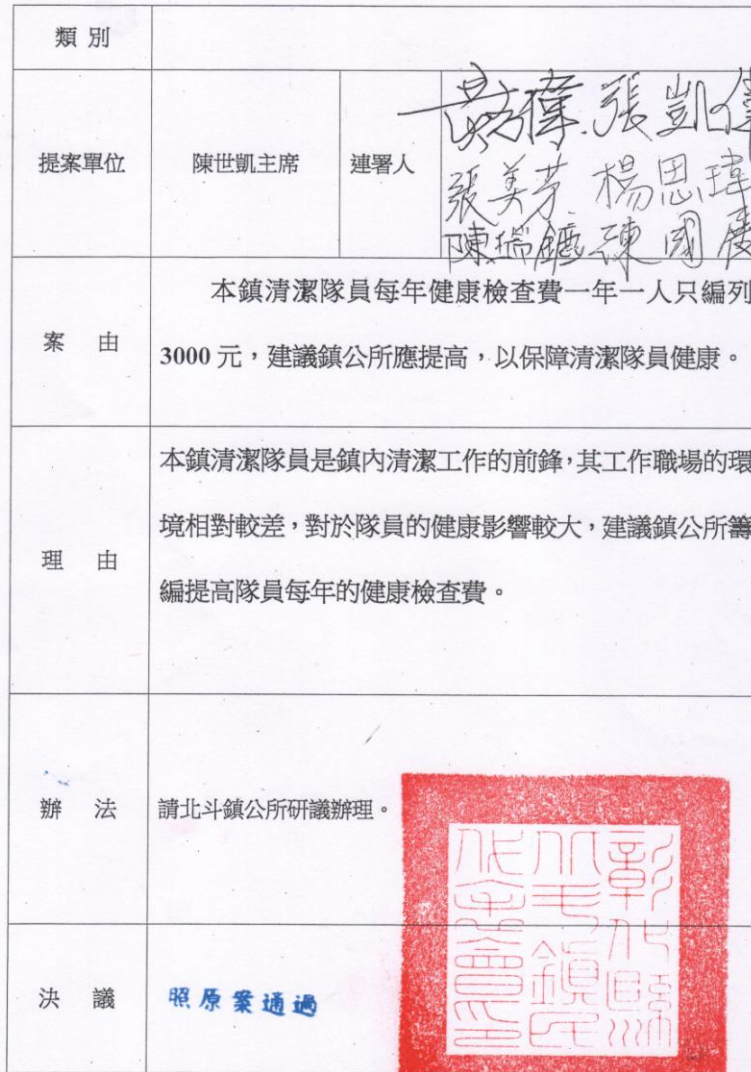 類別
提案單位
陳世凱主席
連署人
張凱
張美芳 楊思瑋
陳瑞 陳國
案由
本鎮清潔隊員每年健康檢查費一年一人只編列
3000 元，建議鎮公所應提高，以保障清潔隊員健康。
理由
本鎮清潔隊員是鎮內清潔工作的前鋒，其工作職場的環
境相對較差，對於隊員的健康影響較大，建議鎮公所籌
編提高隊員每年的健康檢查費。
辦法
請北斗鎮公所研議辦理。
彰化縣
北斗鎮民
代表會印
決議
照原案通過